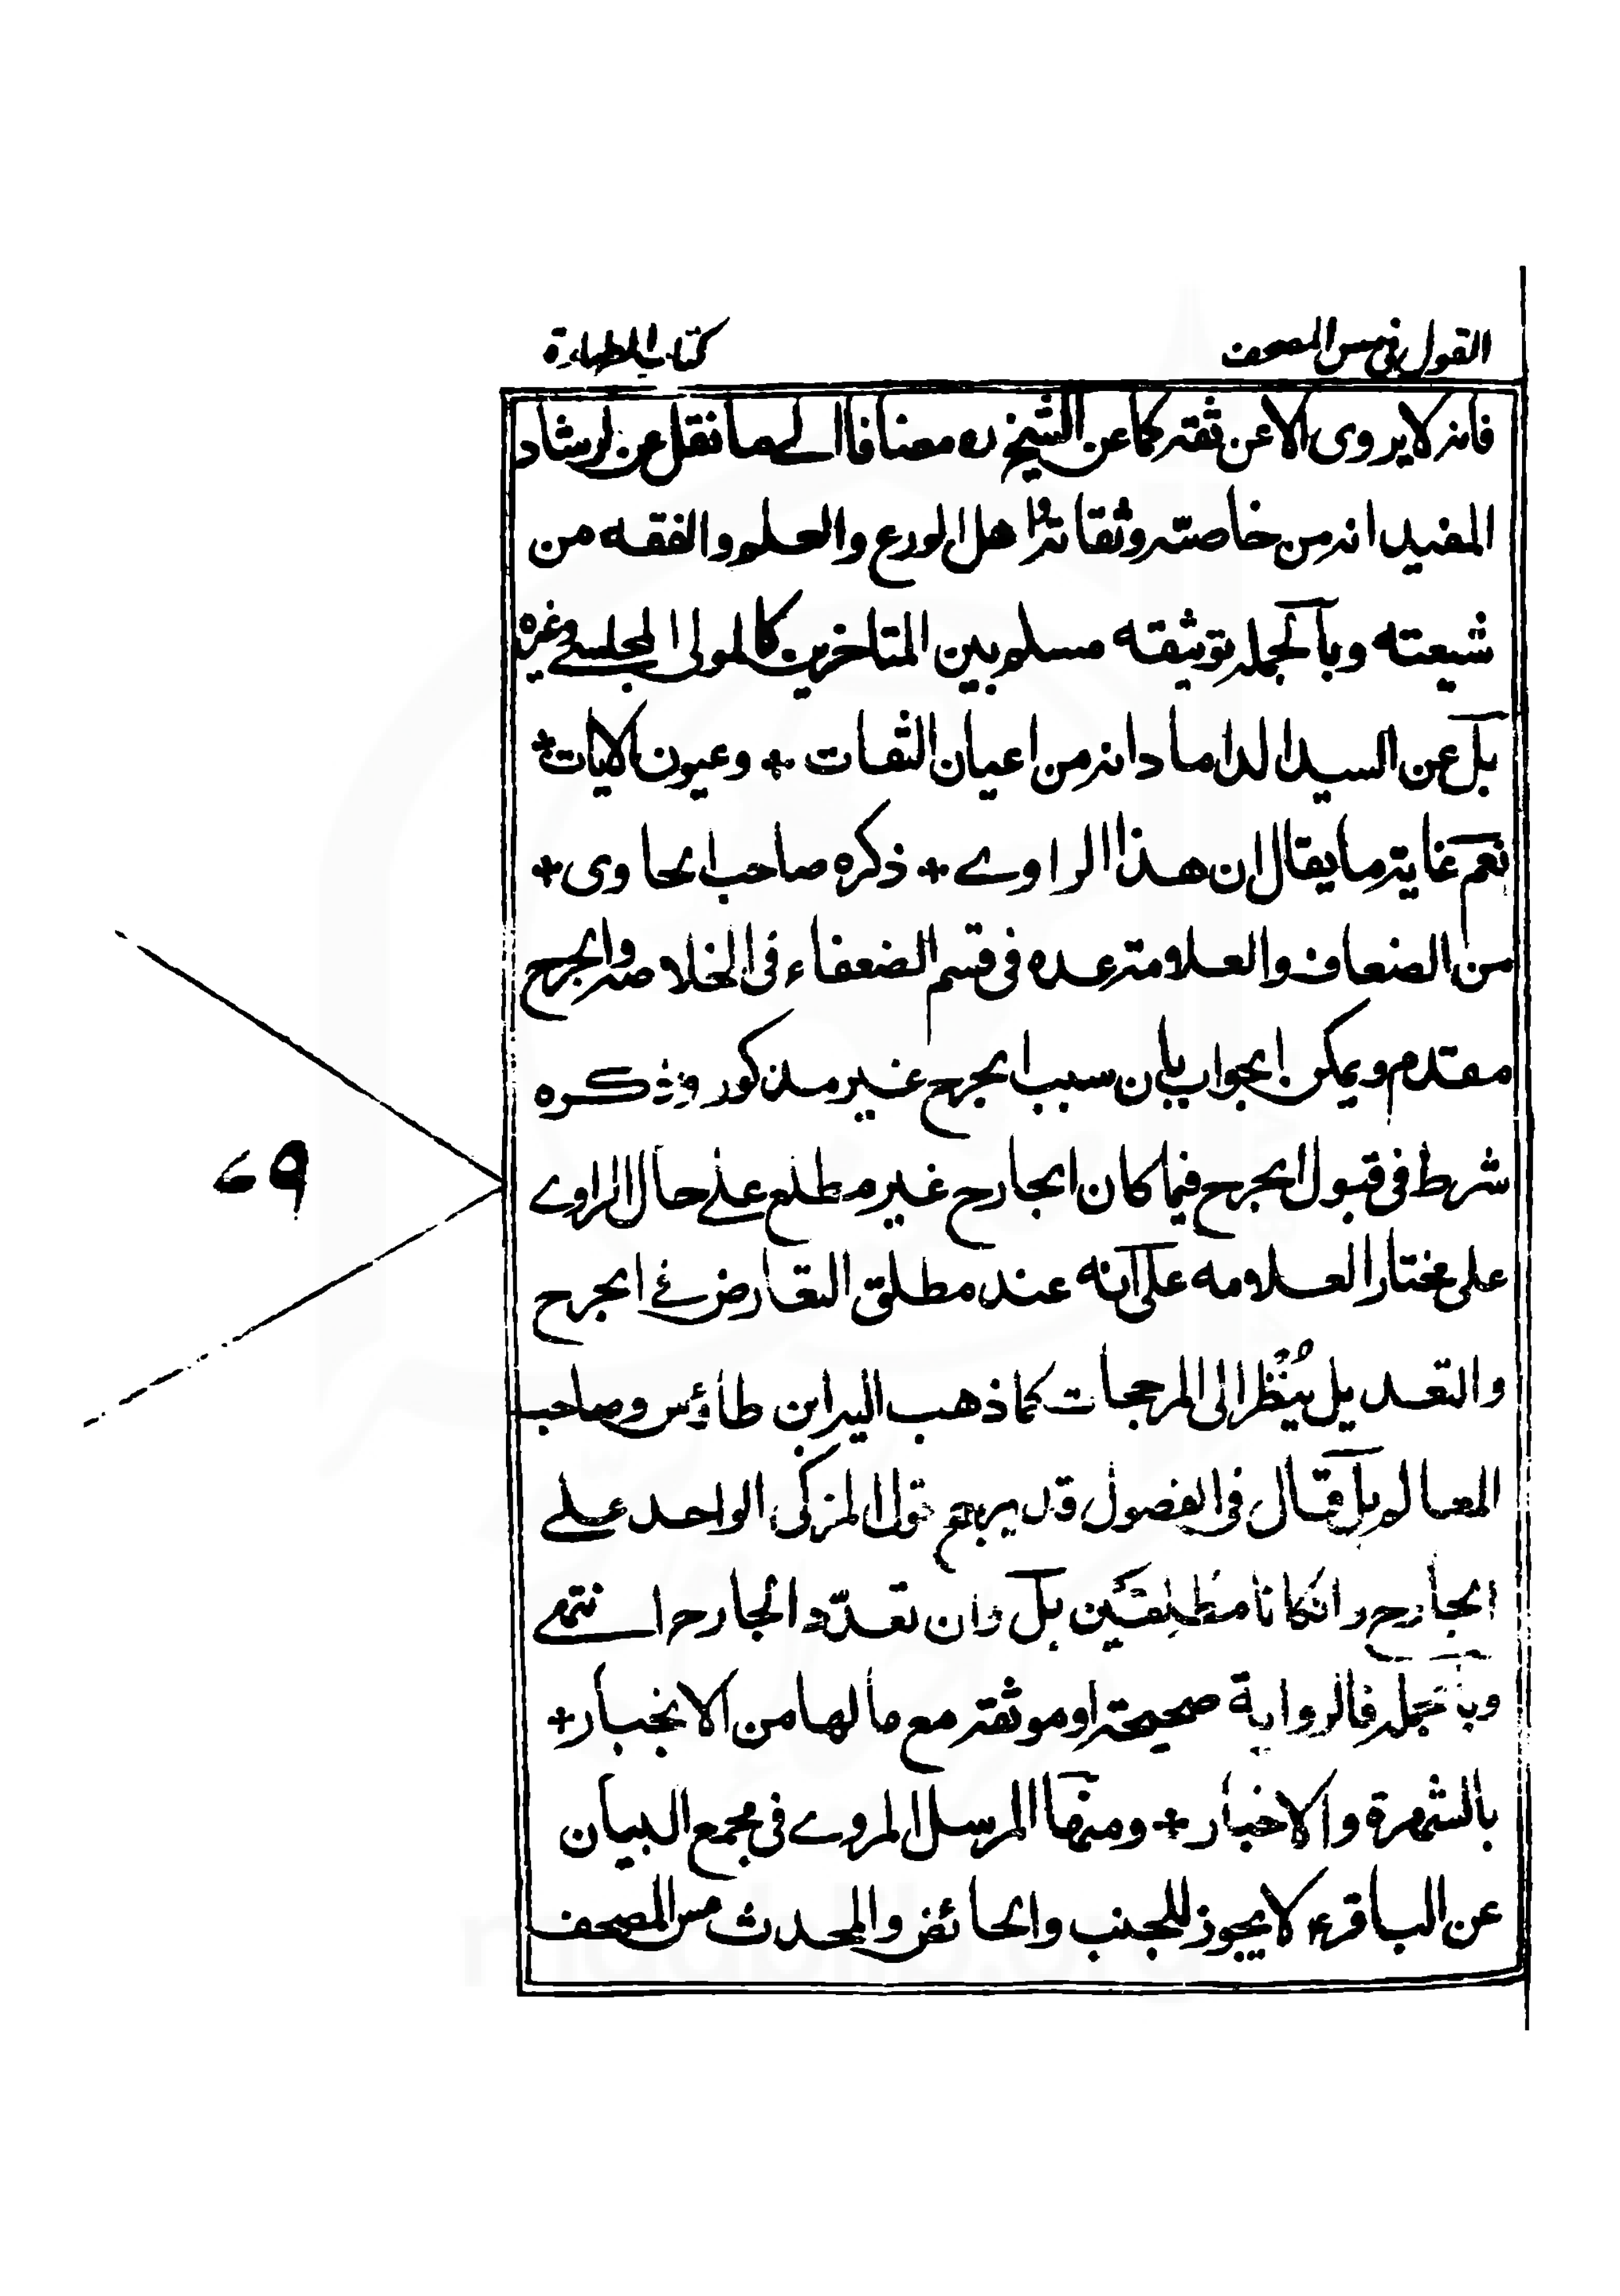 القول فى مس المصحف
كتاب الطهارة
فانه لا يروى الا عن ثقة كما عن الشيخ ره مضافا الى ما نقل عن ارشاد
المفيد انه من خاصته وثقاته واهل الورع والعلم والفقه من
شيعته وبالجمله توثيقه مسلم بين المتاخرين كالمولى المجلسے وغيره
بل عن السيد الداماد انه من اعيان الثقات + وعيون الاثبات +
نعم غاية ما يقال ان هذا الراوے + ذكره صاحب الحاوى +
من الضعاف والعلامة عده فى قسم الضعفاء فى الخلاصه والجرح
مقدم ويمكن الجواب بان سبب الجرح غير مذكور وذكره
شرط فى قبول الجرح فيما كان الجارح غير مطلع علے حال الراوے
على مختار العلامه على انه عند مطلق التعارض فے الجرح
والتعديل ينظر الى المرجحات كما ذهب اليه ابن طاؤس وصاحب
المعالم بل قال فى الفصول قد يرجح قول المزكى الواحد علے
الجارح وان كانا مطلقين بل وان تعدّد الجارح انتهے
وبالجمله فالرواية صحيحة او موثقة مع ما لها من الانجبار +
بالشهرة والاخبار + ومنها المرسل المروے فى مجمع البيان
عن الباقرء لا يجوز للجنب والحائض والمحدث مس المصحف